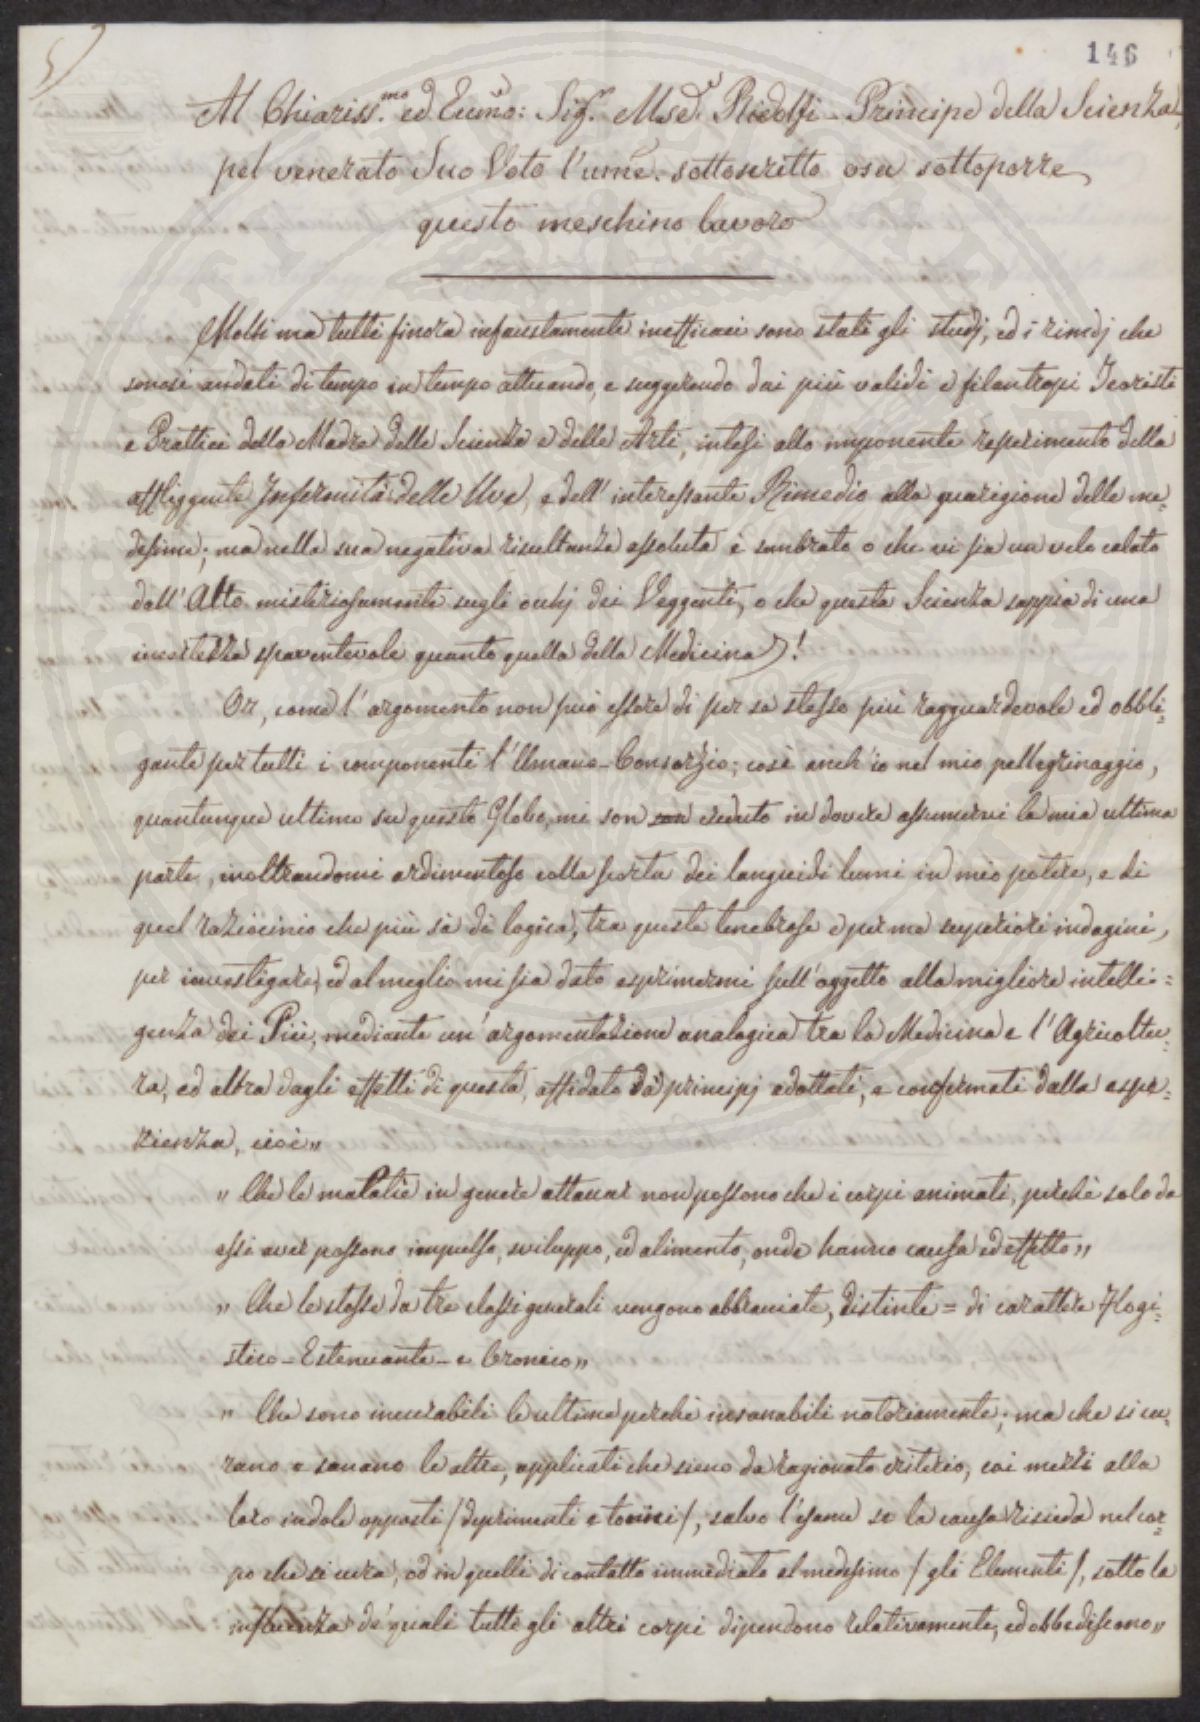 146
Al Chiariss.mo ed Eccmo: Sig.r M.se Ridolfi – Principe della Scienza,
pel venerato Suo Voto l'ume. sottoscritto osa sottoporre
questo meschino lavoro
Molti ma tutti finora infaustamente inefficaci sono stati gli studj, ed i rimedj che
sonosi andati di tempo in tempo attuando, e suggerendo dai più validi e filantropi Teoristi
e Prattici della Madre delle Scienze e delle Arti, intesi allo imponente reperimento della
affliggente Infermità delle Uve, e dell'interessante Rimedio alla guarigione delle me=
desime; ma nella sua negativa risultanza assoluta è sembrato o che vi sia un velo calato
dall'Alto misteriosamente sugli occhj dei Veggenti, o che questa Scienza sappia di una
incertezza spaventevole quanto quella della Medicina!
Or, come l'argomento non può essere di per se stesso più ragguardevole ed obbli=
gante per tutti i componenti l'Umano-Consorzio; così anch'io nel mio pellegrinaggio,
quantunque ultimo su questo Globo, mi son creduto in dovere assumermi la mia ultima
parte, inoltrandomi ardimentoso colla scorta dei languidi lumi in mio potere, e di
quel raziocinio che più sà di logica, tra queste tenebrose e per me superiori indagini,
per investigare, ed al meglio mi sia dato esprimermi sull'oggetto alla migliore intelli=
genza dei Più, mediante un'argomentazione analogica tra la Medicina e l'Agricoltu=
ra, ed altra dagli effetti di questa, affidato da' principj adottati, e confermati dalla espe=
rienza, cioè„
„ Che le malatie in genere attaccar non possono che i corpi animati, perchè solo da
essi aver possono impulso, sviluppo, ed alimento, onde hanno causa ed effetto„
„ Che le stesse da tre classi generali vengono abbracciate, distinte = di carattere Flogi=
stico – Estenuante – e Cronico„
„ Che sono incurabili le ultime perchè insanabili notoriamente; ma che si cu=
rano e sanano le altre, applicati che sieno da ragionato criterio, coi mezzi alla
loro indole opposti /deprimenti e tonici/, salvo l'esame se la causa risieda nel cor=
po che si cura, od in quelli di contatto immediato al medesimo /gli Elementi/, sotto la
influenza de' quali tutti gli altri corpi dipendono relativamente, ed obbediscono„